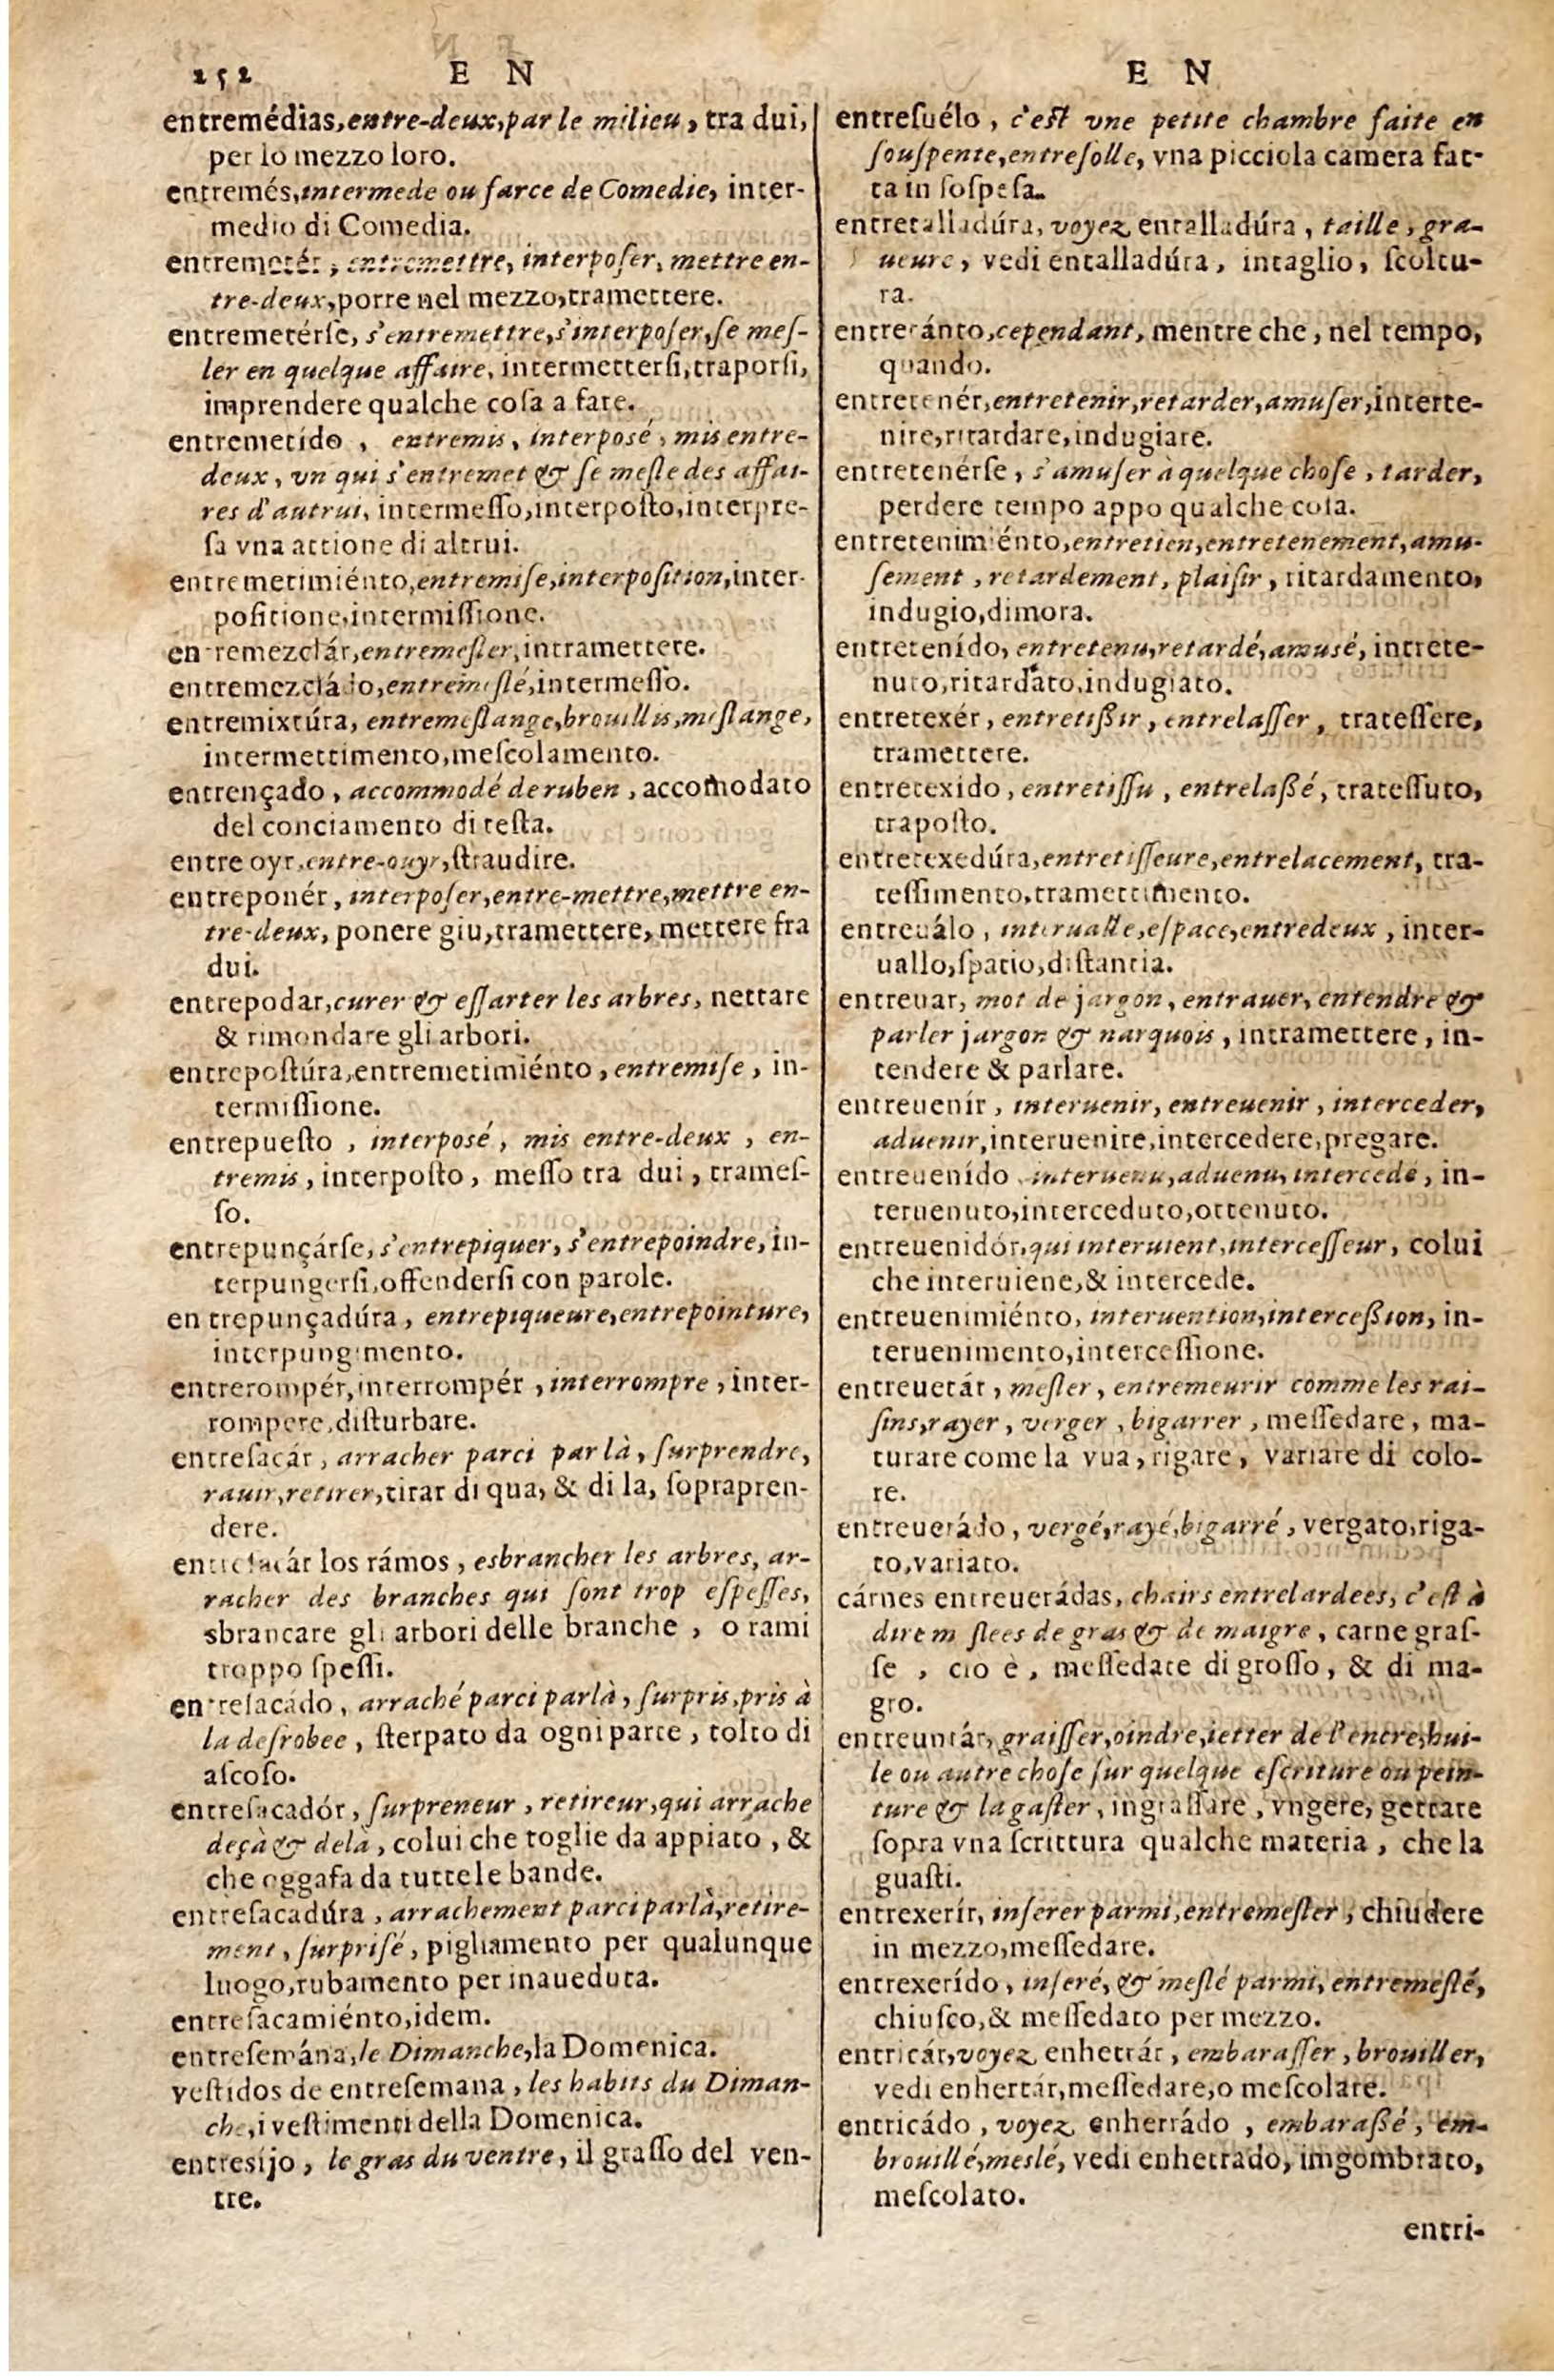 252 E N
entremédias, entre-deux, par le milieu, tra dui,
per lo mezzo loro.
entremés, intermede ou farce de Comedie, inter-
medio di Comedia.
entremetér, entremettre, interposer, mettre en-
tre-deux, porre nel mezzo, tramettere.
entremetérſe, s'entremettre, s'interpoſer, ſe meſ-
ler en quelque affaire, intermetterſi, traporſi,
imprendere qualche coſa a fare.
entremetído, entremis, interposé, mis entre-
deux, vn qui s'entremet & ſe meſle des affai-
res d'autrui, intermeſſo, interpoſto, interpre-
ſa vna attione di altrui.
entremetimiénto, entremiſe, interpoſition, inter-
poſitione, intermiſſione.
entremezclár, entremeſler, intramettere.
entremezcládo, entremeſlé, intermeſſo.
entremixtúra, entremeſlange, brouillis, meſlange,
intermettimento, meſcolamento.
entrençado, accommodé de ruben, accomodato
del conciamento di teſta.
entre oyr, entre-ouyr, ſtraudire.
entreponér, interpoſer, entre-mettre, mettre en-
tre-deux, ponere giu, tramettere, mettere fra
dui.
entrepodar, curer & eſſarter les arbres, nettare
& rimondare gli arbori.
entrepoſtúra, entremetimiénto, entremiſe, in-
termiſſione.
entrepueſto, interposé, mis entre-deux, en-
tremis, interpoſto, meſſo tra dui, trameſ-
ſo.
entrepunçárſe, s'entrepiquer, s'entrepoindre, in-
terpungerſi, offenderſi con parole.
en trepunçadúra, entrepiqueure, entrepointure,
interpungimento.
entrerompér, interrompér, interrompre, inter-
rompere, diſturbare.
entreſacár, arracher parci par là, ſurprendre,
rauir, retirer, tirar di qua, & di la, ſoprapren-
dere.
entreſacár los rámos, esbrancher les arbres, ar-
racher des branches qui ſont trop eſpeſſes,
sbrancare gli arbori delle branche, o rami
troppo ſpeſſi.
entreſacádo, arraché parci parlà, ſurpris, pris à
la deſrobee, ſterpato da ogni parte, tolto di
aſcoſo.
entreſacadór, ſurpreneur, retireur, qui arrache
deçà & delà, colui che toglie da appiato, &
che aggafa da tutte le bande.
entreſacadúra, arrachement parci parlà, retire-
ment, ſurpriſé, pigliamento per qualunque
luogo, rubamento per inaueduta.
entreſacamiénto, idem.
entreſemána, le Dimanche, la Domenica.
veſtidos de entreſemana, les habits du Diman-
che, i veſtimenti della Domenica.
entresíjo, le gras du ventre, il graſſo del ven-
tre.
E N
entreſuélo, c'eſt vne petite chambre faite en
ſouſpente, entreſolle, vna picciola camera fat-
ta in ſoſpeſa.
entretalladúra, voyez entalladúra, taille, gra-
ueure, vedi entalladúra, intaglio, ſcoltu-
ra.
entretánto, cependant, mentre che, nel tempo,
quando.
entretenér, entretenir, retarder, amuſer, interte-
nire, ritardare, indugiare.
entretenérſe, s'amuſer à quelque choſe, tarder,
perdere tempo appo qualche coſa.
entretenimiénto, entretien, entretenement, amu-
ſement, retardement, plaiſir, ritardamento,
indugio, dimora.
entretenído, entretenu, retardé, amusé, intrete-
nuto, ritardato, indugiato.
entretexér, entretißir, entrelaſſer, trateſſere,
tramettere.
entretexido, entretiſſu, entrelaßé, trateſſuto,
trapoſto.
entretexedúra, entretiſſeure, entrelacement, tra-
teſſimento, tramettimento.
entreuálo, interualle, eſpace, entredeux, inter-
uallo, ſpatio, diſtantia.
entreuar, mot de jargon, entrauer, entendre &
parler jargon & narquois, intramettere, in-
tendere & parlare.
entreuenír, interuenir, entreuenir, interceder,
aduenir, interuenire, intercedere, pregare.
entreuenído, interuenu, aduenu, intercedé, in-
teruenuto, interceduto, ottenuto.
entreuenidór, qui interuient, interceſſeur, colui
che interuiene, & intercede.
entreuenimiénto, interuention, interceßion, in-
teruenimento, interceſſione.
entreuerár, meſler, entremeurir comme les rai-
ſins, rayer, verger, bigarrer, meſſedare, ma-
turare come la vua, rigare, variare di colo-
re.
entreuerádo, vergé, rayé, bigarré, vergato, riga-
to, variato.
cárnes entreuerádas, chairs entrelardees, c'eſt à
dire meſlees de gras & de maigre, carne graſ-
ſe, cio è, meſſedate di groſſo, & di ma-
gro.
entreuntár, graiſſer, oindre, ietter de l'encre, hui-
le ou autre choſe ſur quelque eſcriture ou pein-
ture & la gaſter, ingraſſare, vngere, gettare
ſopra vna ſcrittura qualche materia, che la
guaſti.
entrexerír, inſerer parmi, entremeſler, chiudere
in mezzo, meſſedare.
entrexerído, inſeré, & meſlé parmi, entremeſlé,
chiuſco, & meſſedato per mezzo.
entricár, voyez enhetrár, embaraſſer, brouiller,
vedi enhertár, meſſedare, o meſcolare.
entricádo, voyez enhetrádo, embaraßé, em-
brouillé, meslé, vedi enhetrado, imgombrato,
meſcolato.
entri-